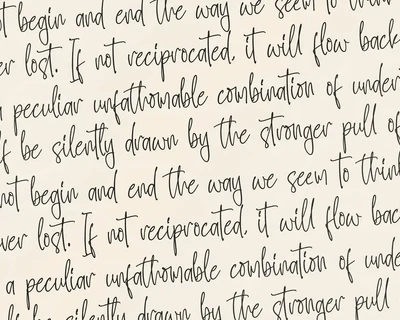 ot begin and end the way we seem to think
er lost. If not reciprocated, it will flow back
a peculiar unfathomable combination of under
lf be silently drawn by the stronger pull of
not begin and end the way we seem to think
ver lost. If not reciprocated, it will flow bac
a peculiar unfathomable combination of unde
be silently drawn by the stronger pull